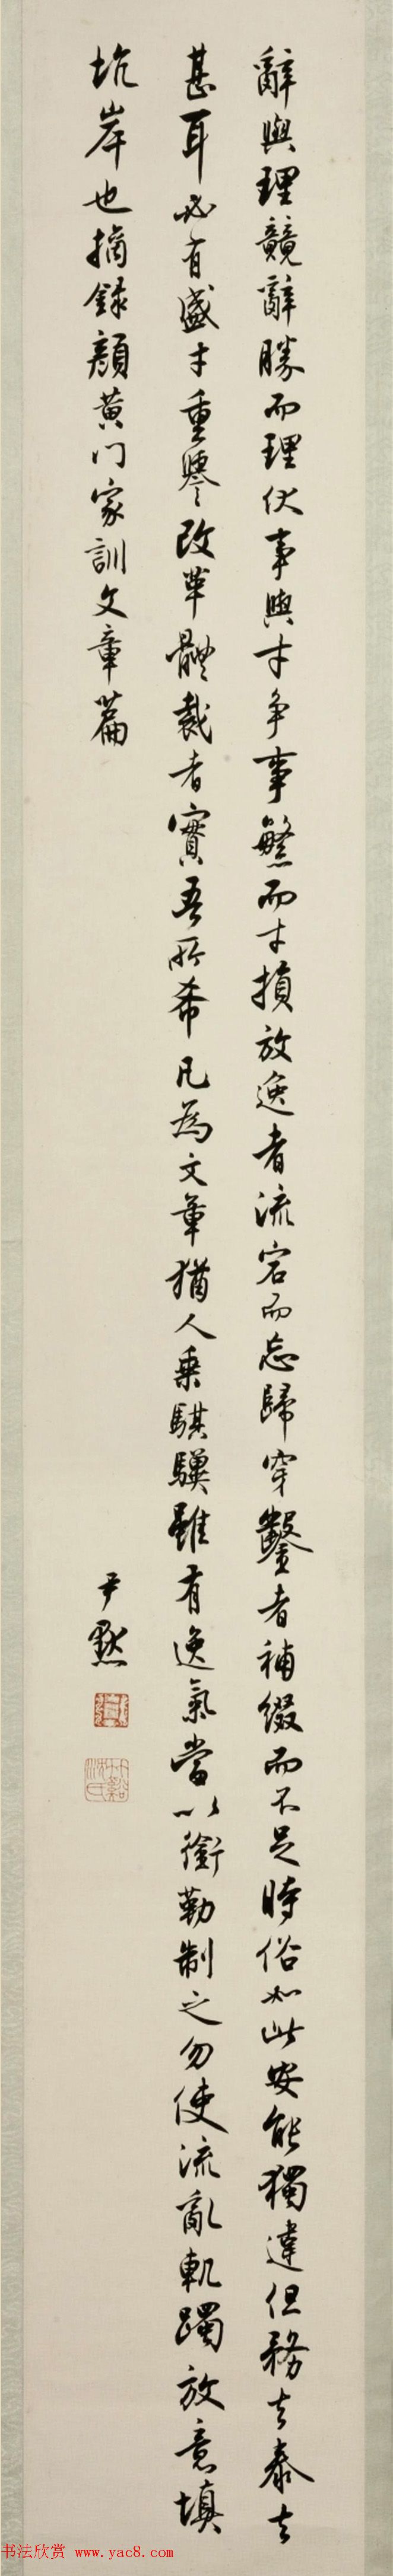 辭與理競辭勝而理伏事與才争事繁而才損放逸者流宕而忘歸穿鑿者補綴而不足時俗如此安能獨違但務去泰去
甚耳必有盛才重譽改革體裁者實吾所希凡為文章猶人乘騏驥雖有逸氣當以銜勒制之勿使流亂軌躅放意填
坑岸也摘録顏黄门家訓文章篇
尹默
书法欣赏 www.yac8.com